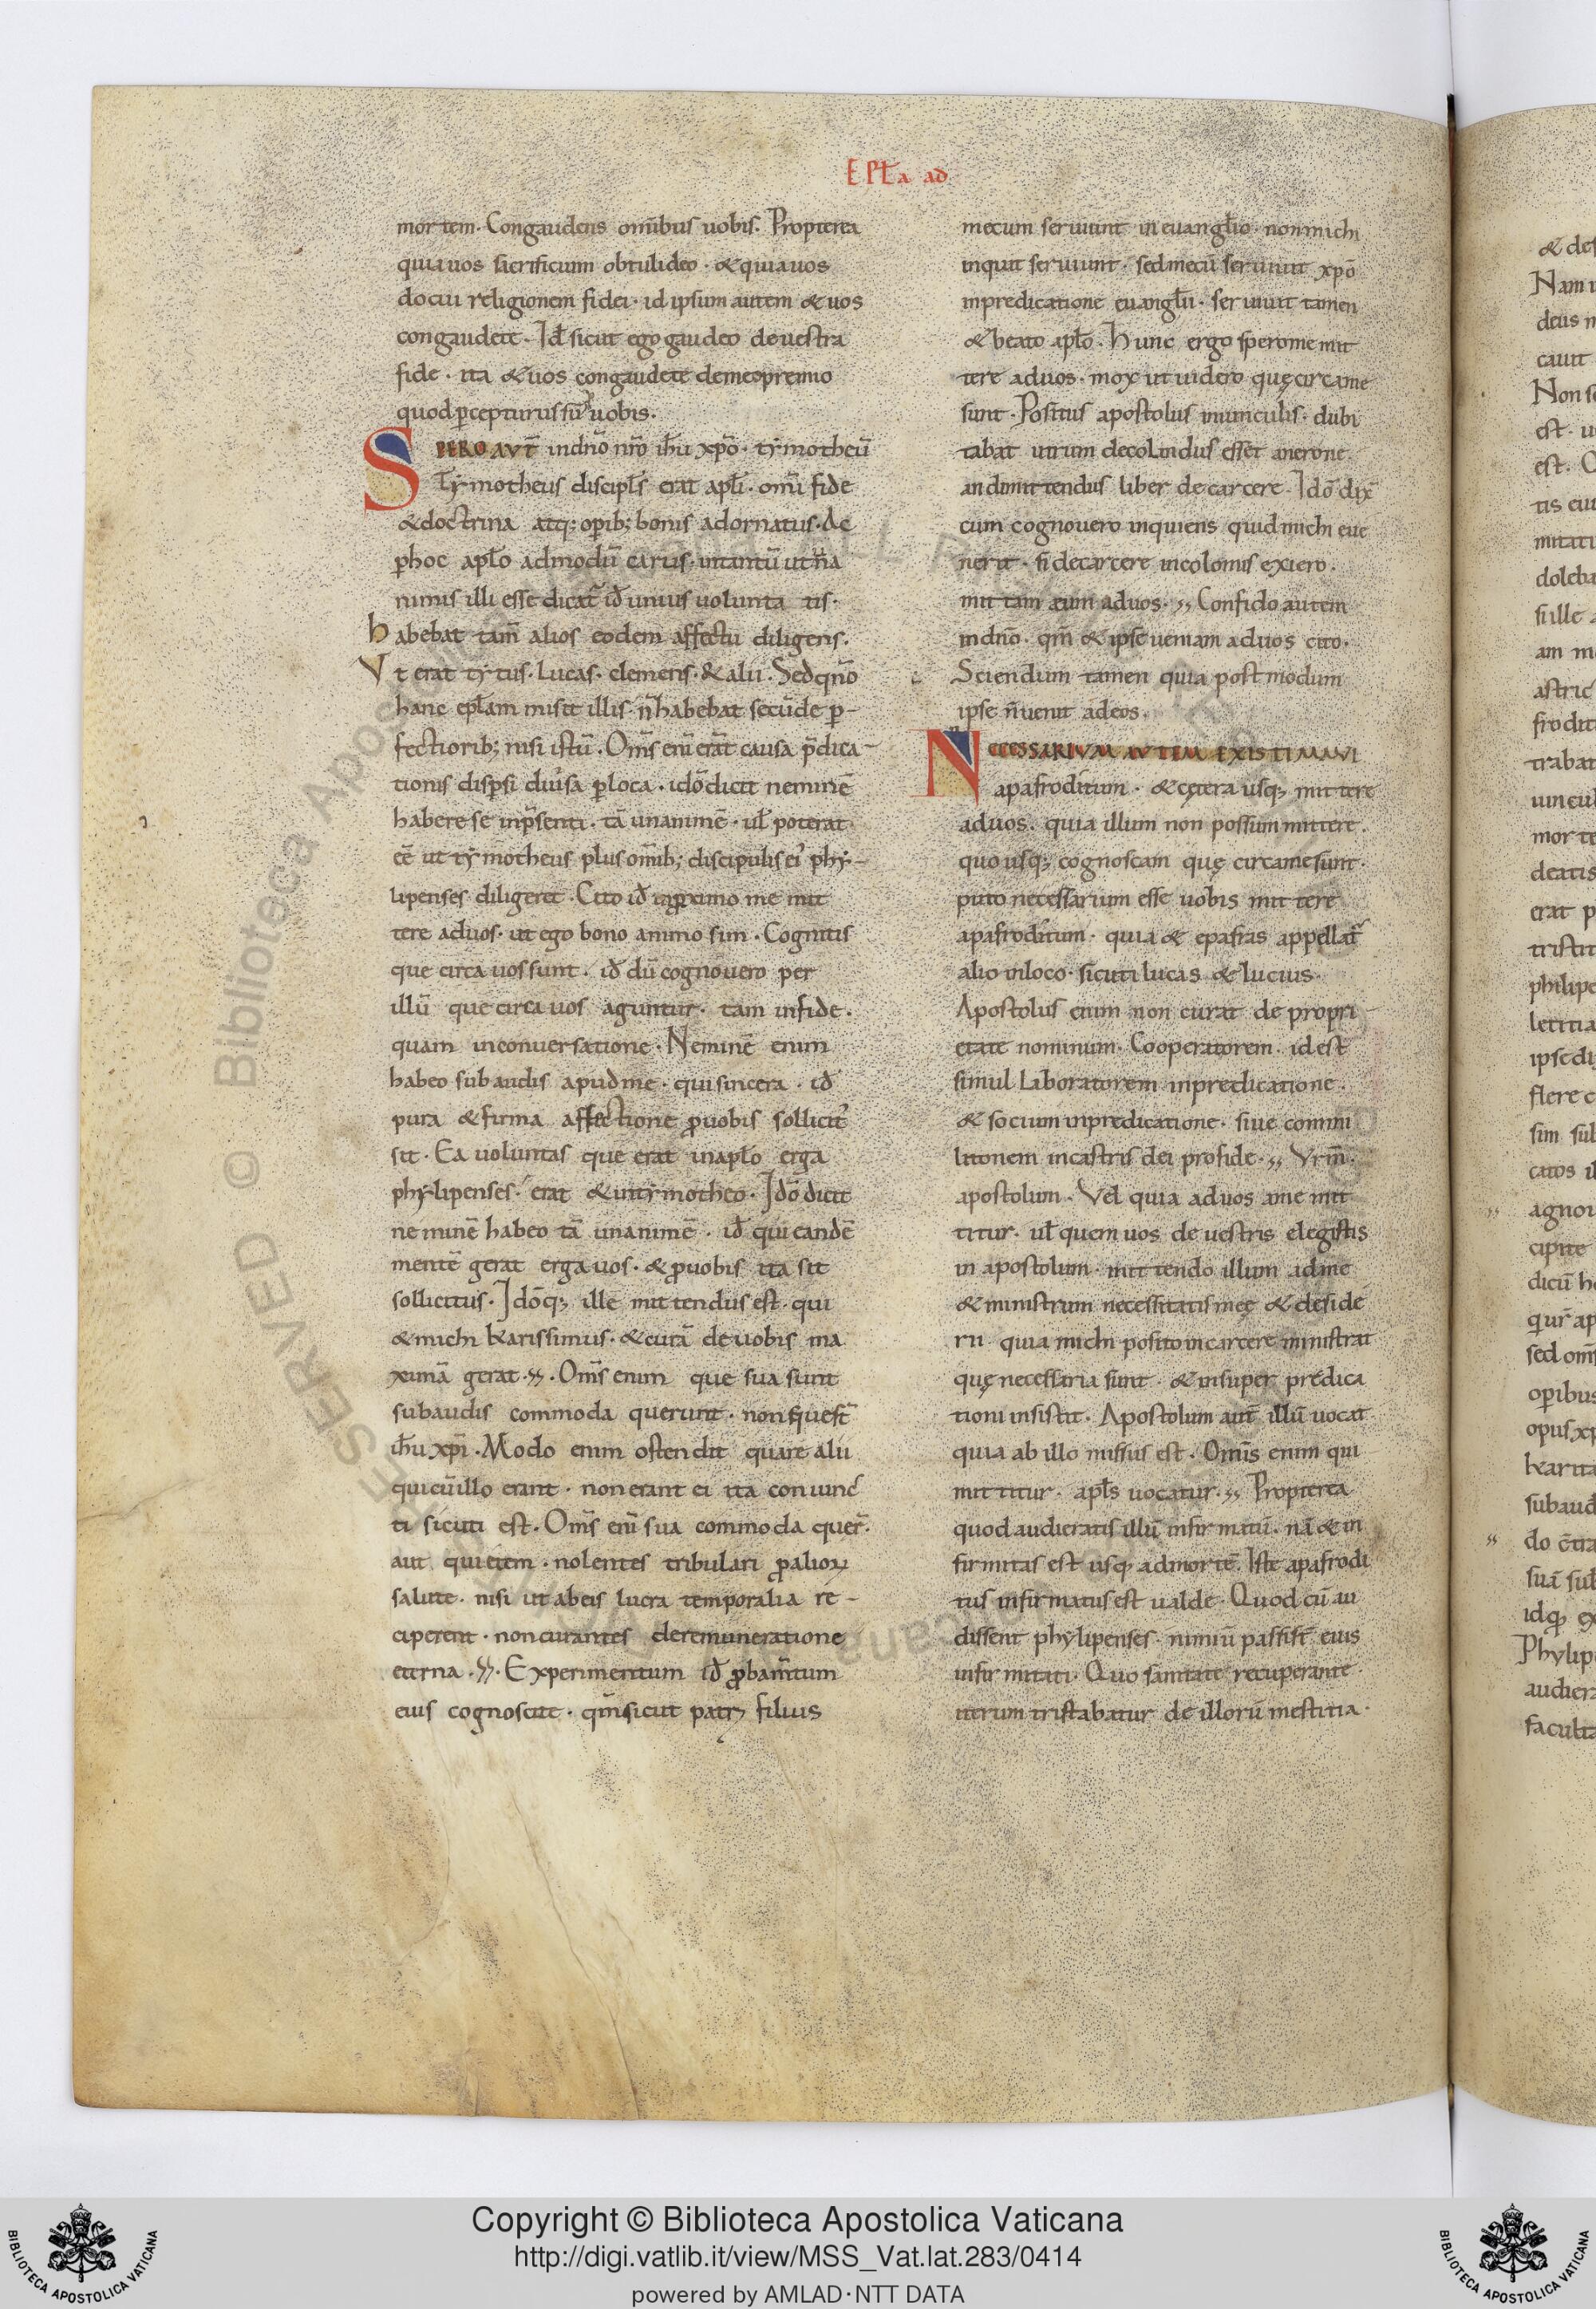 EPŁa ad
mortem. Congaudens omībus uobis. Propterea
quia uos sacrificium obtuli deo. & quia uos
docui religionem fidei. id ipsum autem & uos
congaudete. Id̄ sicut ego gaudeo de uestra
fide. ita & uos congaudete de meo premio
quod ꝑcepturus sū uobis.
SPERO AVT̄ in dn̄o nr̄o ih̄u xp̄o. tymotheū
Tymotheus discipl̄s erat apl̄i. omī fide
& doctrina atq; opib; bonis adornatus. Ac
ꝑ hoc apl̄o admodū carus. in tantū ut una
nimis illi esse dicat̄ id̄ unius uolunta tis.
habebat tam̄ alios eodem affectu diligens.
Vt erat tytus. Lucas. clemens. & alii. Sed qn̄o
hanc epl̄am misit illis. n̄ habebat secū de ꝑ-
fectiorib; nisi istū. Om̄s eni erāt causa p̄dica-
tionis disꝑsi diuisa ꝑ loca. idō dicit neminē
habere se in p̄senti. tā unanimē. ul̄ poterat
eē ut tymotheus plus omīb; discipulis ei' phy-
lipenses diligeret. Cito id̄ in proximo me mit
tere ad uos. ut ego bono animo sim. Cognitis
que circa uos sunt. id̄ dū cognouero per
illū que circa uos aguntur. tam in fide.
quam in conuersatione. Neminē enim
habeo subaudis apud me. qui sincera. id̄
pura & firma affectione ꝓ uobis sollicit'
sit. Ea uoluntas que erat in apl̄o erga
phylipenses. erat & in tymotheo. Idō dicit
neminē habeo tā unanimē. id̄ qui eandē
mentē gerat erga uos. & ꝓ uobis ita sit
sollicitus. Idōq; ille mittendus est. qui
& michi karissimus. & curā de uobis ma
ximā gerat. Om̄s enim que sua sunt
subaudis commoda querunt. non que st̄
ih̄u xp̄i. Modo enim ostendit quare alii
qui cū illo erant. non erant ei ita coniunc
ti sicuti est. Om̄s eni sua commoda quer̄.
aut quietem. nolentes tribulari ꝓ alioꝝ
salute. nisi ut ab eis lucra temporalia re-
ciperent. non curantes de remuneratione
eterna. Experimentum id̄ ꝓbam̄tum
eius cognoscite. qm̄ sicut patri filius
mecum seruiunt in euangl̄io. non michi
inquit seruiunt. sed mecū seruiuit xp̄o
in predicatione euangl̄ii. seruiuit tamen
& beato apl̄o. Hunc ergo spero me mit
tere ad uos. mox ut uidero quę circa me
sunt. Positus apostolus in uinculis. dubi
tabat utrum decollandus esset a nerone.
an dimittendus liber de carcere. Idō dix̄
cum cognouero inquiens quid michi eue
nerit. si de carcere incolomis exiero.
mittam eum ad uos. Confido autem
in dn̄o. qm̄ & ipse ueniam ad uos cito.
Sciendum tamen quia postmodum
ipse n̄ uenit ad eos.
NECESSARIVM AVTEM EXISTIMAVI
apafroditum. & cętera usq; mittere
ad uos. quia illum non possum mittere.
quo usq; cognoscam quę circa me sunt.
puto necessarium esse uobis mittere
apafroditum. quia & epafras appellat̄
alio in loco. sicuti lucas & lucius.
Apostolus enim non curat de propri
etate nominum. Cooperatorem. id est
simul Laboratorem in predicatione.
& socium in predicatione. siue commi
litonem in castris dei pro fide. Vrm̄.
apostolum. Vel quia ad uos a me mit
titur. ul̄ quem uos de uestris elegistis
in apostolum. mittendo illum ad me
& ministrum necessitatis meę & deside
rii. quia michi posito in carcere ministrat
quę necessaria sunt. & insuper predica
tioni insistit. Apostolum aut̄ illū uocat
quia ab illo missus est. Omīs enim qui
mittitur. apl̄s uocatur. Propterea
quod audieratis illū infirmatū. nā & in
firmitas est usq; ad mortē. Iste apafrodi
tus infirmatus est ualde. Quod cū au
dissent phylipenses. nimiū passi st̄ eius
infirmitati. Quo sanitatē recuperante.
iterum tristabatur de illorū mestitia.
& des
Nam
deus
cauit
Non
est.
est.
tis
mitati
doleba
si ille
am
astric
frodit
trabat
uincul
morte
deatis
erat p
tristit
philipe
letitia
ipse di
flere
sim
catos
agnou
cipite
dicū
qur̄ ap
sed om̄s
opibus
opus xp
karita
subaud
do
suā
idq;
Phylip
audiera
faculta
© Biblioteca Apostolica Vaticana
Copyright © Biblioteca Apostolica Vaticana
http://digi.vatlib.it/view/MSS_Vat.lat.283/0414
powered by AMLAD·NTT DATA
BIBLIOTECA APOSTOLICA VATICANA
BIBLIOTECA APOSTOLICA VATICANA